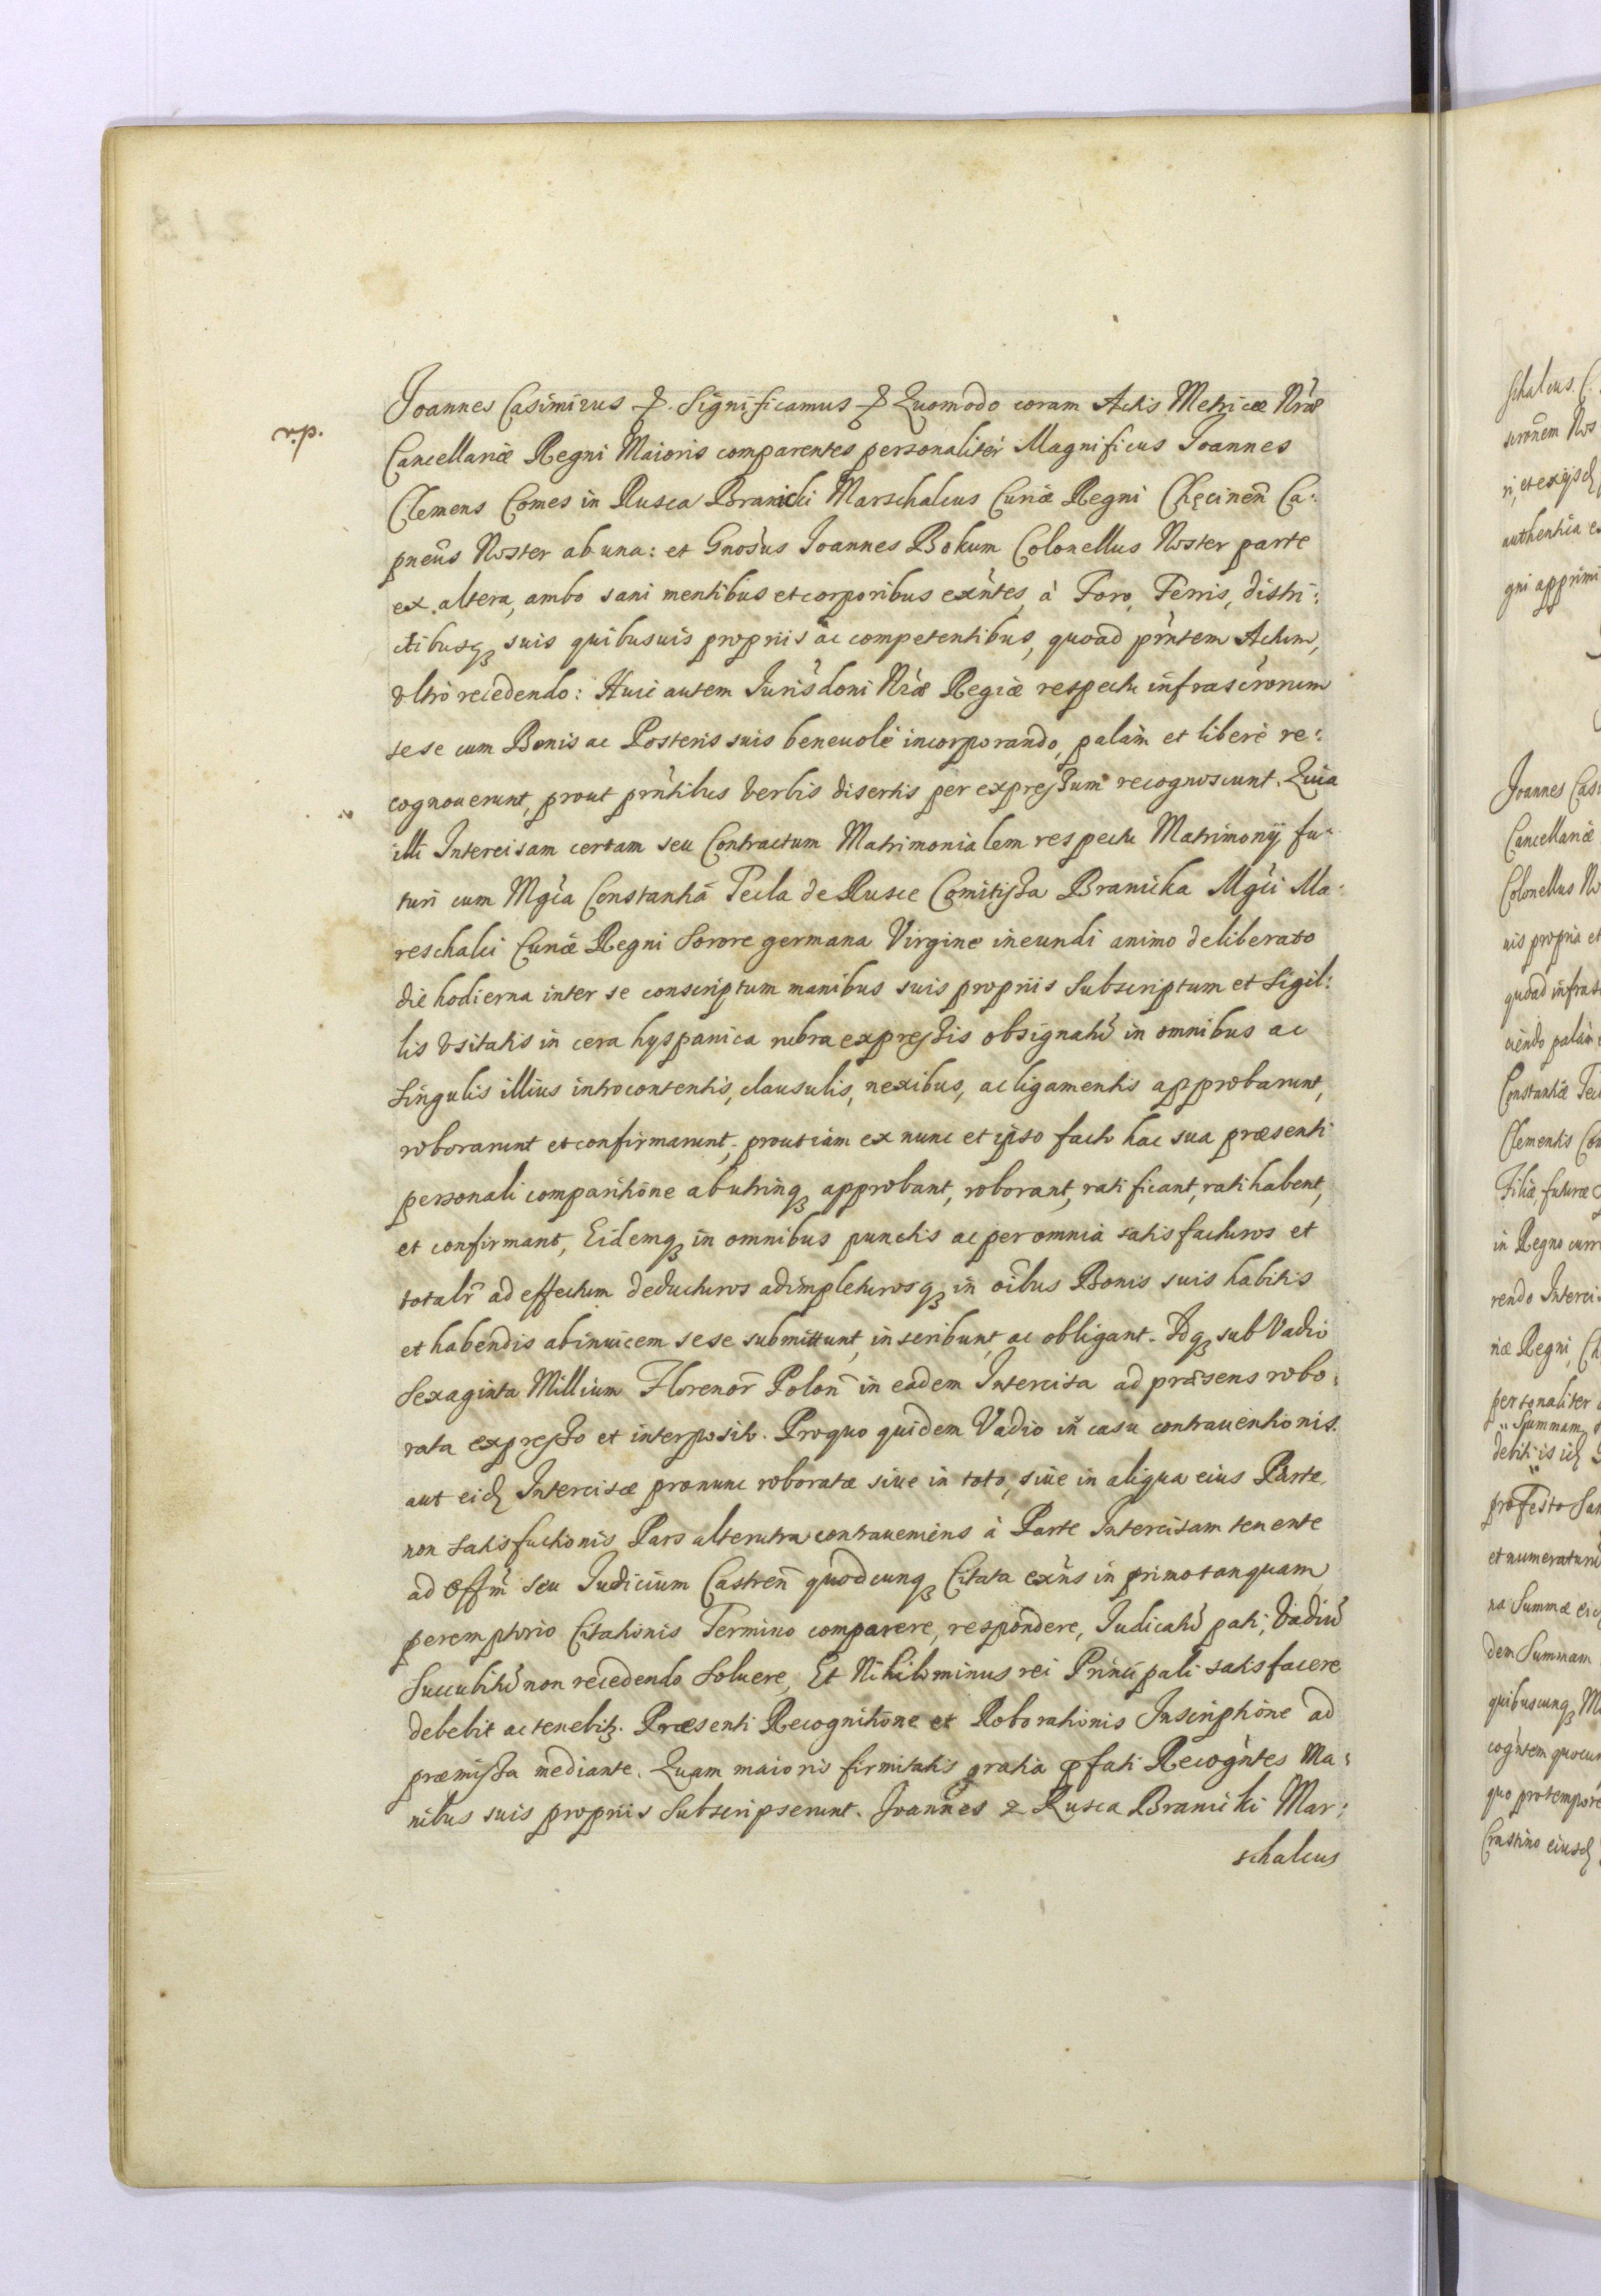 r.p.
Joannes Casimirus &. Significamus & Quomodo coram Actis Metricæ Nr̃æ
Cancellariæ Regni Maioris comparentes personaliter Magnificus Joannes
Clemens Comes in Rusca Branicki Marschalcus Curiæ Regni Chęcinen̄ Ca:
pneũs Noster ab una: et Gnosus Joannes Bokum Colonellus Noster parte
ex altera, ambo sani mentibus et corporibus exñtes, à Foro, Terris, distri:
ctibusqꝫ suis quibusuis propriis ac competentibus, quoad pñtem Actum,
vltrò recedendo: Huic autem Jurisdoni Nr̃æ Regiæ respectu infrascr̃orum
sese cum Bonis ac Posteris suis beneuolè incorporando, palàm et liberè re:
cognouerunt, prout pñtibus verbis disertis per expressum recognoscunt. Quia
illi Intercisam certam seu Contractum Matrimonialem respectu Matrimonij fu:
turi cum Mgc̃a Constantiã Tecla de Rusce Comitissa Branicka Mgci Ma:
reschalci Curiæ Regni Sorore germana Virgine ineundi animo deliberato
die hodierna inter se conscriptum manibus suis propriis Subscriptum et Sigil:
lis vsitatis in cera hyspanica rubra expressis obsignatũ in omnibus ac
Singulis illius introcontentis, clausulis, nexibus, ac ligamentis approbarunt,
roborarunt et confirmarunt, prout iam ex nunc et ipso facto hac sua præsenti
personali comparitione abutrinqꝫ approbant, roborant, ratificant, ratihabent,
et confirmant, Eidemqꝫ in omnibus punctis ac per omnia satisfacturos et
totalr̃ ad effectum deducturos adimpleturosqꝫ in oĩbus Bonis suis habitis
et habendis abinuicem sese submittunt, inscribunt, ac obligant. Idqꝫ sub Vadio
Sexaginta Millium Florenor̃ Polon̄ in eadem Intercisa ad præsens robo:
rata expresso et interposito. Pro quo quidem Vadio in casu contrauentionis
aut eidꝫ Intercisæ pronunc roboratæ siue in toto, siue in aliqua eius Parte
non satisfactionis Pars alterutra contraueniens à Parte Intercisam tenente
ad Offm̃ seu Judicium Castren̄ quodcunqꝫ Citata exñs in primo tanquam
peremptorio Citationis Termino comparere, respondere, Judicatũ pati, Vadiũ
Succubitũ non recedendo Soluere, Et Nihilominus rei Principali satisfacere
debebit ac tenebitꝫ. Præsenti Recognitione et Roborationis Inscriptione ad
præmissa mediante. Quam maioris firmitatis gratia ꝓfati Recogñtes Ma:
nibus suis propriis Subscripserunt. Joannes & Rusca Branicki Mar:
schalcus